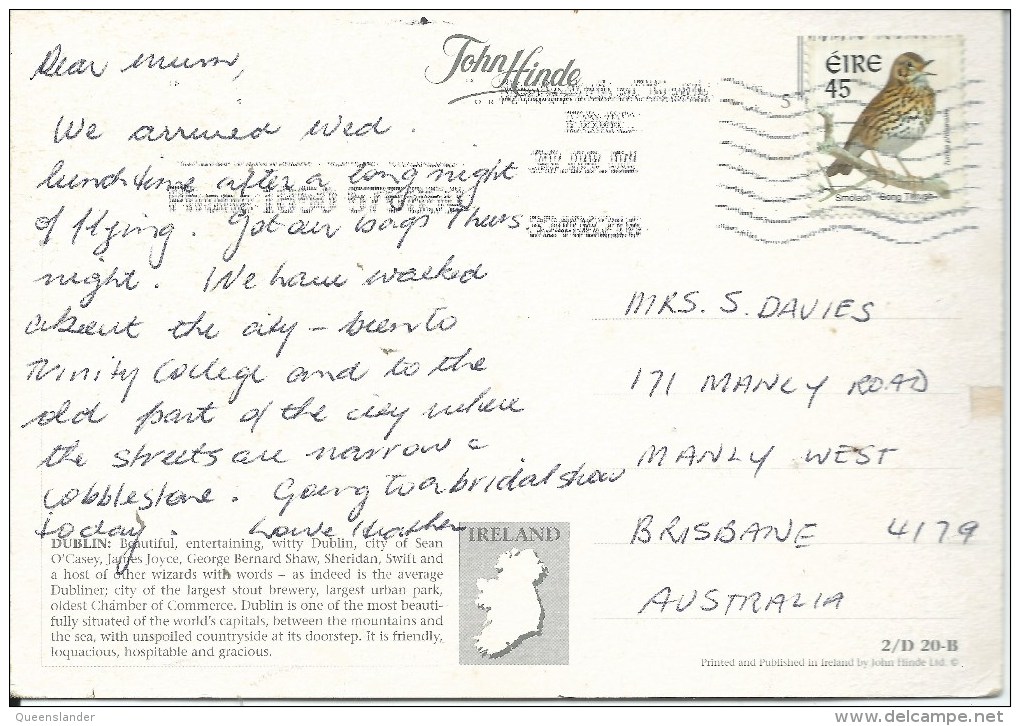 Dear Mum,
We arrived Wed.
lunchtime after a long night
of flying. Got our bags Thurs.
night. We have walked
about the city - been to
Trinity College and to the
old part of the city where
the streets are narrow &
cobblestone. Going to a bridal show
today. Love Heather
John Hinde
ÉIRE
45
Smólach Song Thrush
MRS. S. DAVIES
171 MANLY ROAD
MANLY WEST
BRISBANE 4179
AUSTRALIA
DUBLIN: Beautiful, entertaining, witty Dublin, city of Sean
O'Casey, James Joyce, George Bernard Shaw, Sheridan, Swift and
a host of other wizards with words – as indeed is the average
Dubliner; city of the largest stout brewery, largest urban park,
oldest Chamber of Commerce. Dublin is one of the most beauti-
fully situated of the world's capitals, between the mountains and
the sea, with unspoiled countryside at its doorstep. It is friendly,
loquacious, hospitable and gracious.
IRELAND
2/D 20-B
Printed and Published in Ireland by John Hinde Ltd. ©
Queenslander
www.delcampe.net